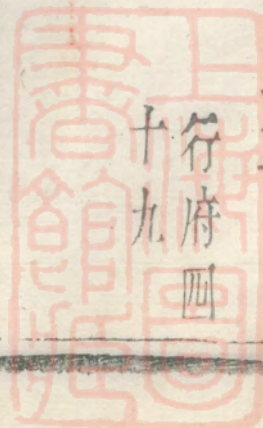 行府四
十九
上海圖
書館藏